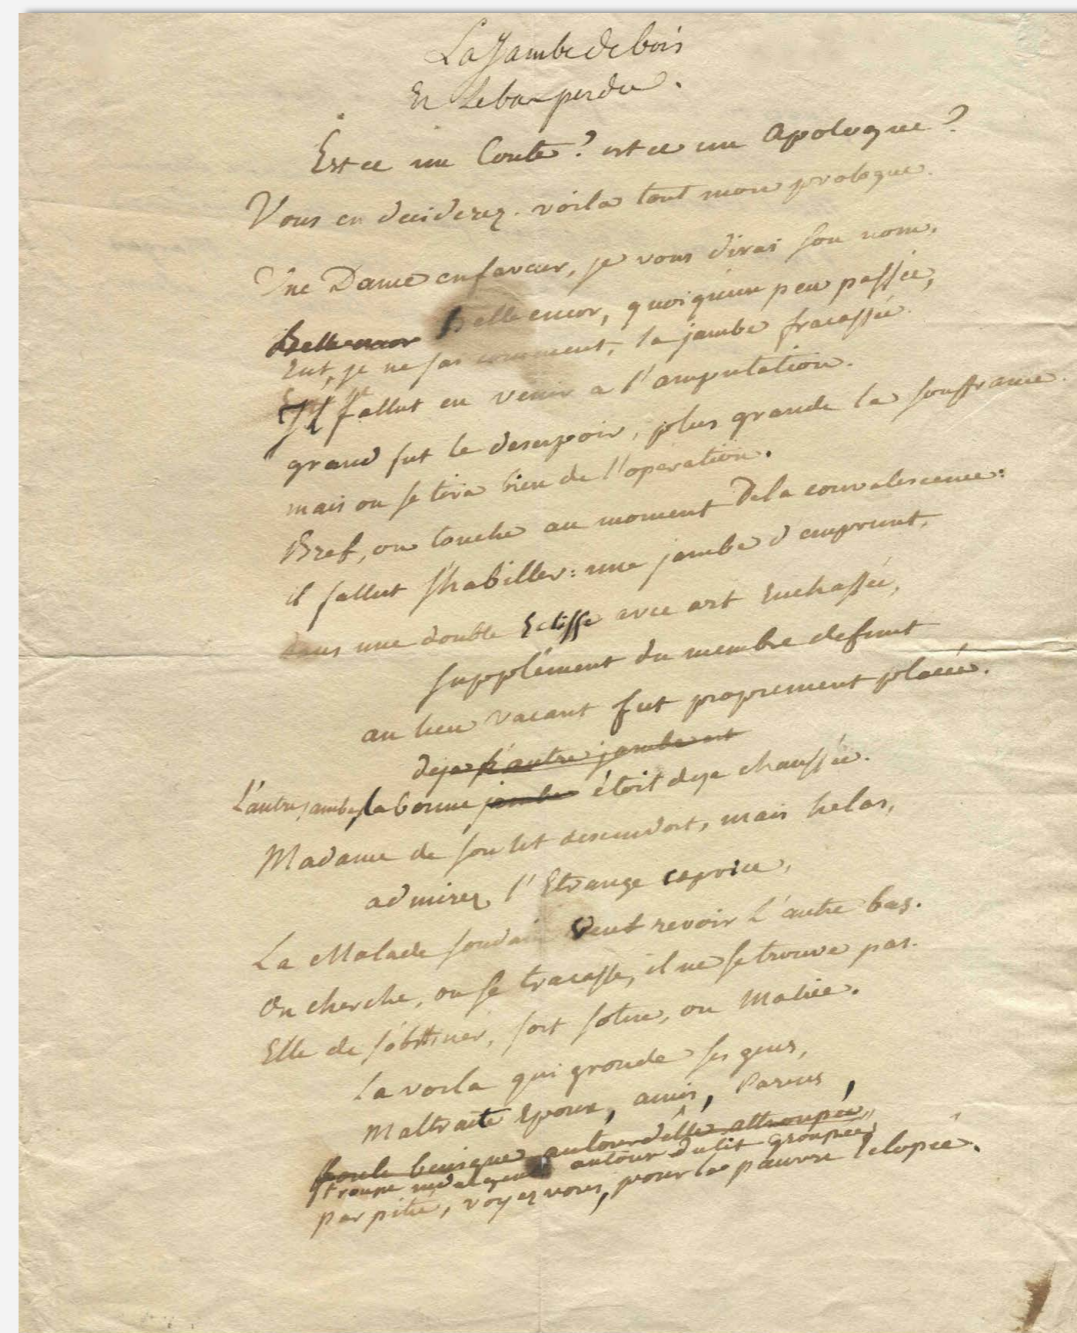 La Jambe de bois
Et Le bas perdu.
Est ce un Conte? est ce un Apologue?
Vous en deciderez. voila tout mon prologue.
Une Dame en faveur, je vous dirai son nom,
Belle encor Belle encor, quoiqu'un peu passée,
Eut, je ne sai comment, la jambe fracassée.
Il fallut en venir a l'amputation.
grand fut le desespoir, plus grande la souffrance.
mais on se tira bien de l'operation.
Bref, on touche au moment De la convalescence:
il fallut s'habiller: une jambe d'emprunt,
dans une double Eclisse avec art Enchassée,
supplément du membre defunt
au lieu vacant fut proprement placée.
deja l'autre jambe est
L'autre jambe, la bonne jambe étoit deja chaussée.
Madame de son lit descendoit, mais helas,
admirez l'Etrange caprice,
La Malade soudain veut revoir L'autre bas.
On cherche, on se tracasse, il ne se trouve pas.
Elle de s'obstiner, soit sotise, ou Malice.
La voila qui gronde ses gens,
Maltraite Epoux, amis, Parens,
foule benigne autour d'elle attroupée,
troupe autour du lit groupée,
par pitié, voyez vous, pour la pauvre éclopée.